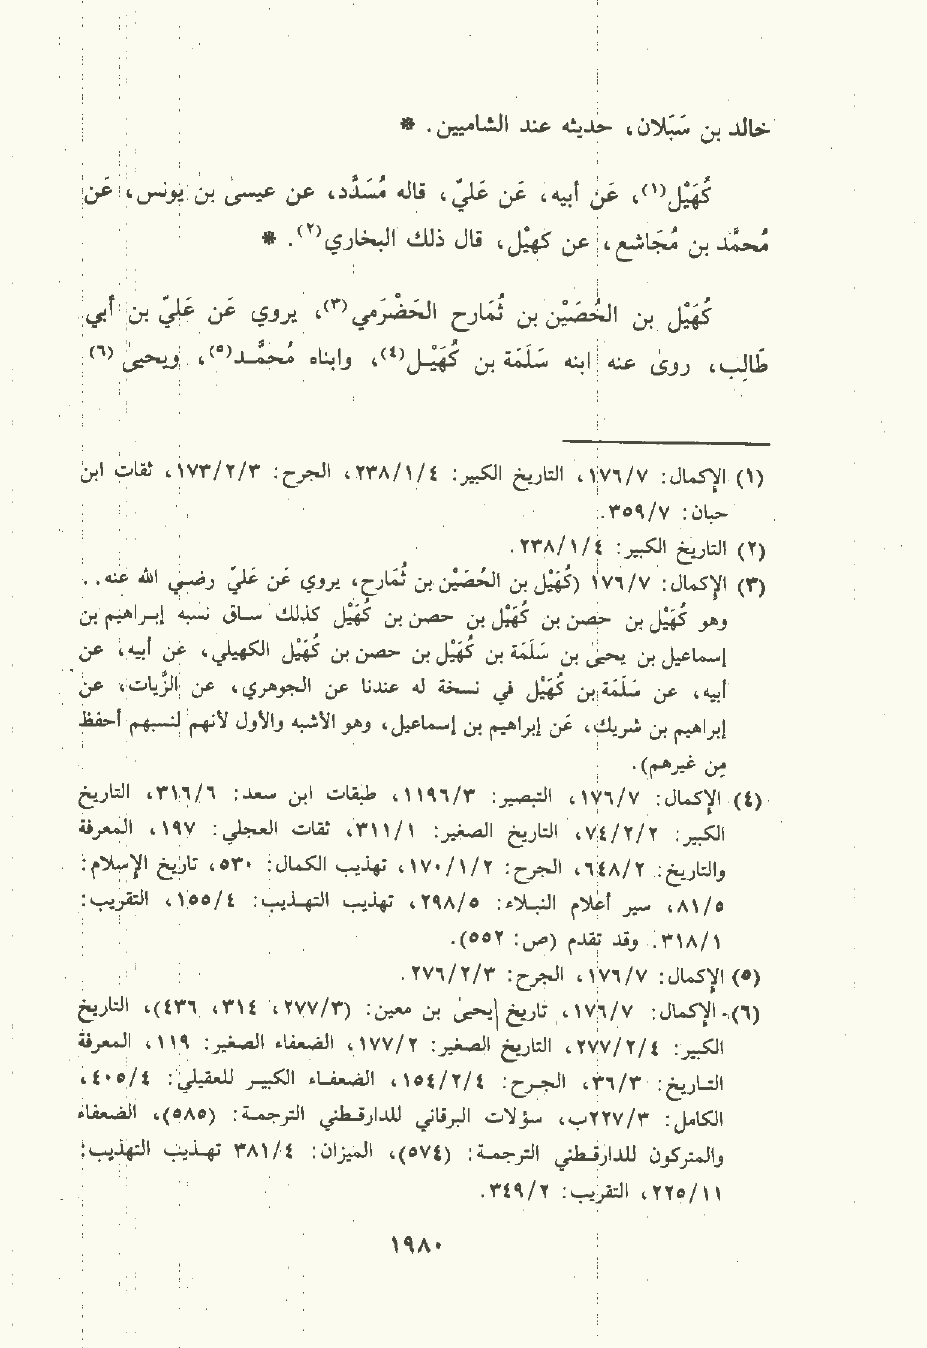 خالد بن سَبَلان، حديثه عند الشاميين. *
كُهَيْل(١)، عَن أبيه، عَن عَليّ، قاله مُسَدَّد، عن عيسىٰ بن يونس، عَن
مُحمَّد بن مُجَاشع، عن كهيْل، قال ذلك البخاري(٢). *
كُهَيْل بن الحُصَيْن بن ثُمَارح الحَضْرَمي(٣)، يروي عَن عَليّ بن أبي
طَالِب، روىٰ عنه ابنه سَلَمَة بن كُهَيْـل(٤)، وابناه مُحمَّـد(٥)، ويحيىٰ(٦)
(١) الإكمال: ١٧٦/٧، التاريخ الكبير: ٢٣٨/١/٤، الجرح: ١٧٣/٢/٣، ثقات ابن
حبان: ٣٥٩/٧.
(٢) التاريخ الكبير: ٢٣٨/١/٤.
(٣) الإكمال: ١٧٦/٧ (كُهَيْل بن الحُصَيْن بن ثُمَارح، يروي عَن عَليّ رضـي الله عنه..
وهو كُهَيْل بن حصن بن كُهَيْل بن حصن بن كُهَيْل كذلك سـاق نسبه إبـراهيم بن
إسماعيل بن يحيىٰ بن سَلَمَة بن كُهَيْل بن حصن بن كُهَيْل الكهيلي، عن أبيه، عن
أبيه، عن سَلَمَة بن كُهَيْل في نسخة له عندنا عن الجوهري، عن الزَّيات، عن
إبراهيم بن شريك، عَن إبراهيم بن إسماعيل، وهو الأشبه والأول لأنهم لنسبهم أحفظ
مِن غيرهم).
(٤) الإكمال: ١٧٦/٧، التبصير: ١١٩٦/٣، طبقات ابن سعد: ٣١٦/٦، التاريخ
الكبير: ٧٤/٢/٢، التاريخ الصغير: ٣١١/١، ثقات العجلي: ١٩٧، المعرفة
والتاريخ: ٦٤٨/٢، الجرح: ١٧٠/١/٢، تهذيب الكمال: ٥٣٠، تاريخ الإسلام:
٨١/٥، سير أعلام النبـلاء: ٢٩٨/٥، تهذيب التهـذيب: ١٥٥/٤، التقريب:
٣١٨/١. وقد تقدم (ص: ٥٥٢).
(٥) الإكمال: ١٧٦/٧، الجرح: ٢٧٦/٢/٣.
(٦) الإكمال: ١٧٦/٧، تاريخ يحيىٰ بن معين: (٢٧٧/٣، ٣١٤، ٤٣٦)، التاريخ
الكبير: ٢٧٧/٢/٤، التاريخ الصغير: ١٧٧/٢، الضعفاء الصغير: ١١٩، المعرفة
التـاريخ: ٣٦/٣، الجـرح: ١٥٤/٢/٤، الضعفـاء الكبـير للعقيلي: ٤٠٥/٤،
الكامل: ٢٢٧/٣ب، سؤلات البرقاني للدارقـطني الترجمـة: (٥٨٥)، الضعفاء
والمتركون للدارقـطني الترجمـة: (٥٧٤)، الميزان: ٣٨١/٤ تهـذيب التهذيب:
٢٢٥/١١، التقريب: ٣٤٩/٢.
١٩٨٠